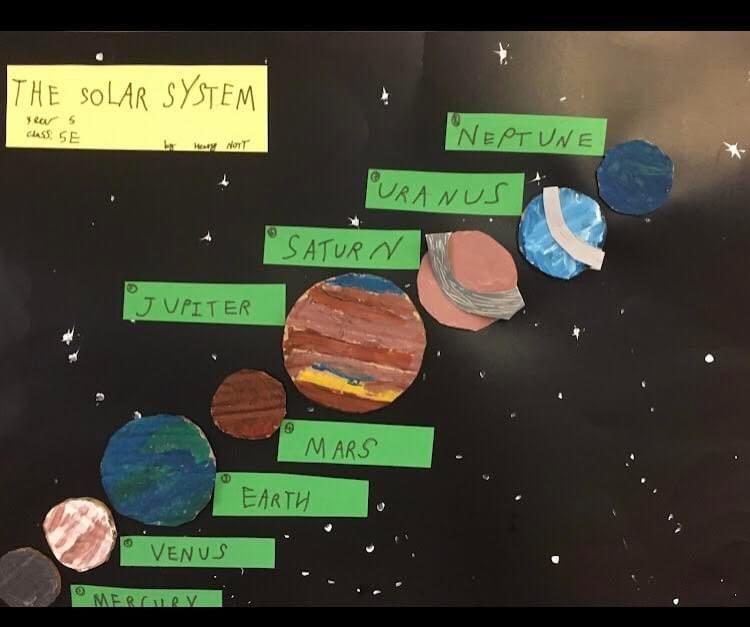 THE SOLAR SYSTEM
year 5
class: 5E
by Henry NOTT
NEPTUNE
URANUS
SATURN
JUPITER
MARS
EARTH
VENUS
MERCURY